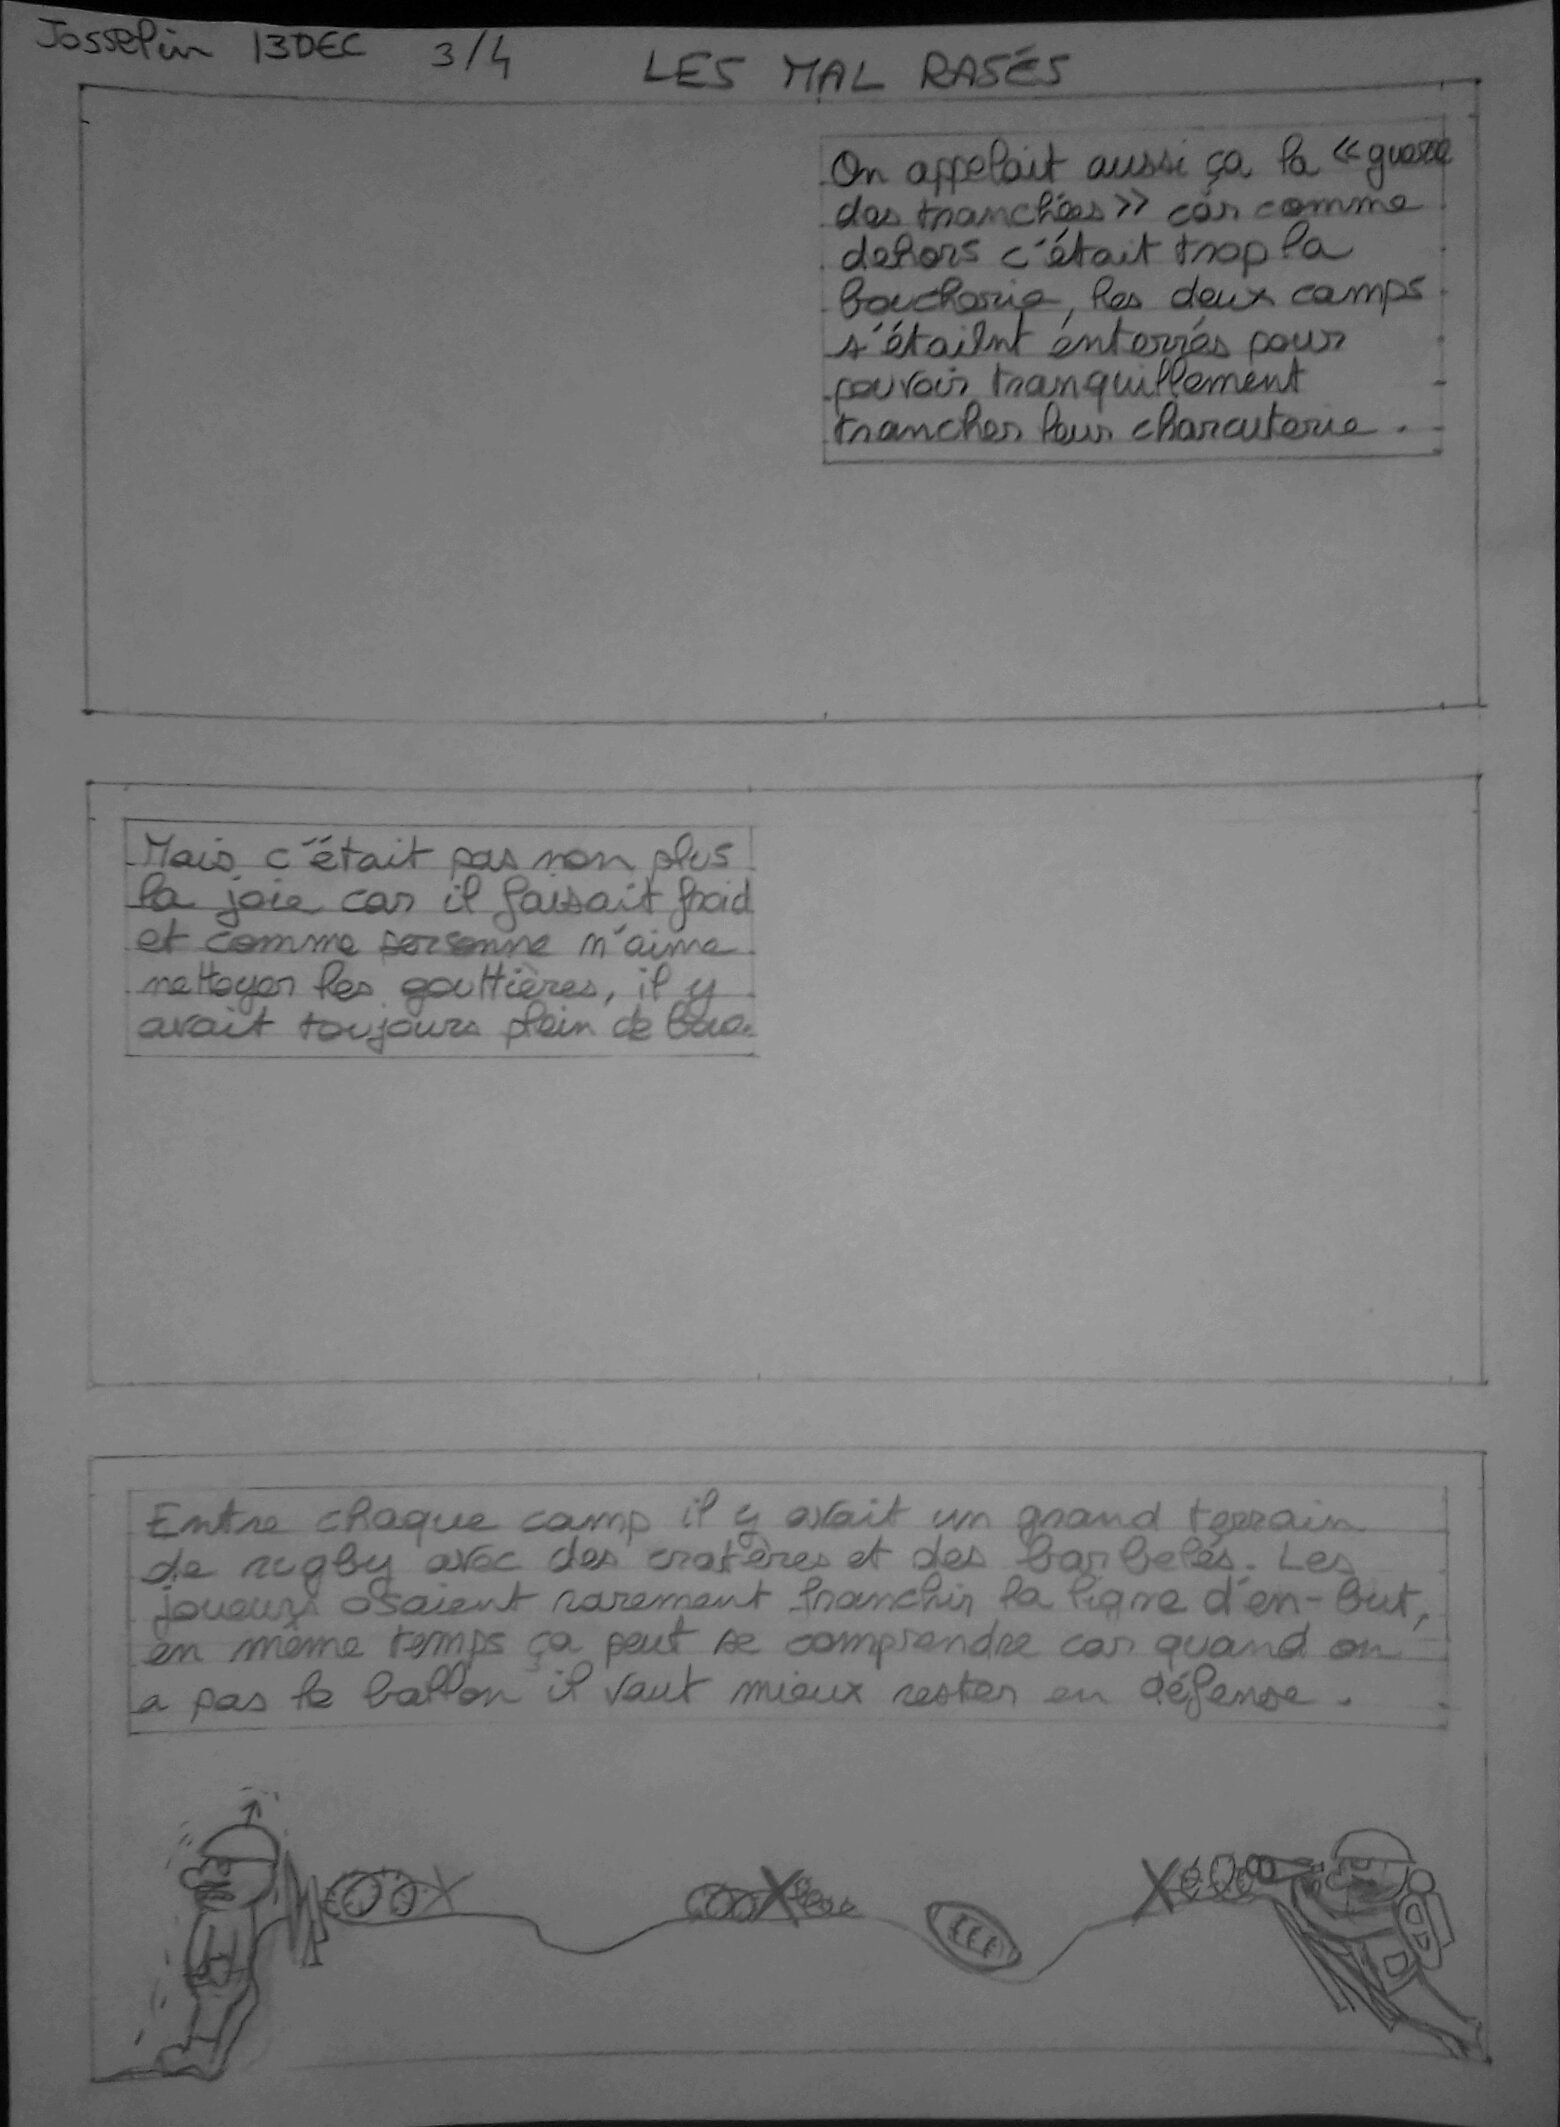 Josselin 13DEC 3/4 LES MAL RASÉS
On appelait aussi ça la «guerre
des tranchées» car comme
dehors c'était trop la
boucherie, les deux camps
s'étaient enterrés pour
pouvoir tranquillement
trancher leur charcuterie.
Mais c'était pas non plus
la joie car il faisait froid
et comme personne n'aime
nettoyer les gouttières, il y
avait toujours plein de boue.
Entre chaque camp il y avait un grand terrain
de rugby avec des cratères et des barbelés. Les
joueurs osaient rarement franchir la ligne d'en-but,
en même temps ça peut se comprendre car quand on
a pas le ballon il vaut mieux rester en défense.